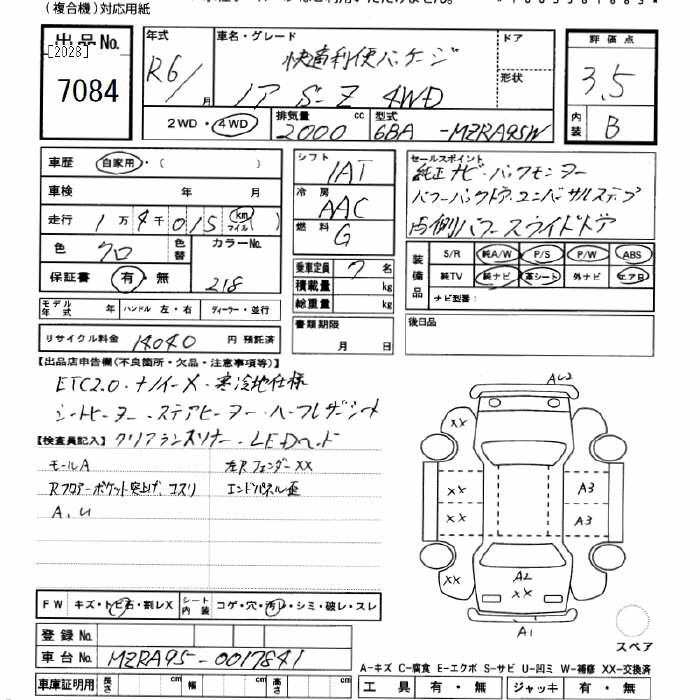 (複合機)対応用紙
出品No.
[2028]
7084
年式
R6/
月
車名・グレード
快適利便パッケージ
ノア S-Z 4WD
ドア
形状
評価点
3.5
内装
B
2WD・4WD
排気量
2000
cc
型式
6BA -MZRA95W
車歴
自家用・( )
車検
年 月
走行
1万4千015
km
マイル
色
クロ
色替
カラーNo.
218
保証書
有・無
シフト
IAT
冷房
AAC
燃料
G
乗車定員
7名
積載量
kg
総重量
kg
書類期限
月 日
セールスポイント
純正ナビ・バックモニター
パワーバックドア・ユニバーサルステップ
両側パワースライドドア
装備品
S/R
純A/W
P/S
P/W
ABS
純TV
純ナビ
革シート
外ナビ
エアB
ナビ型番:
後日品
モデル年式
年
ハンドル
左・右
ディーラー・並行
リサイクル料金
14040
円 預託済
【出品店申告欄(不良箇所・欠品・注意事項等)】
ETC2.0・ナノイーX・寒冷地仕様
シートヒーター・ステアヒーター・ハーフレザーシート
【検査員記入】
クリアランスソナー・LEDヘッド
モールA
左Rフェンダー XX
Rフロアーポケット突上げ、コスリ
エンドパネル歪
A、U
FW
キズ・トビ石・割レX
シート内装
コゲ・穴・汚レ・シミ・破レ・スレ
登録No.
車台No.
MZRA95-0017841
車庫証明用
長さ
cm
幅
cm
高さ
cm
AU2
XX
XX
XX
XX
A3
A3
A2
XX
A1
スペア
A-キズ C-腐食 E-エクボ S-サビ U-凹ミ W-補修 XX-交換済
工具
有・無
ジャッキ
有・無